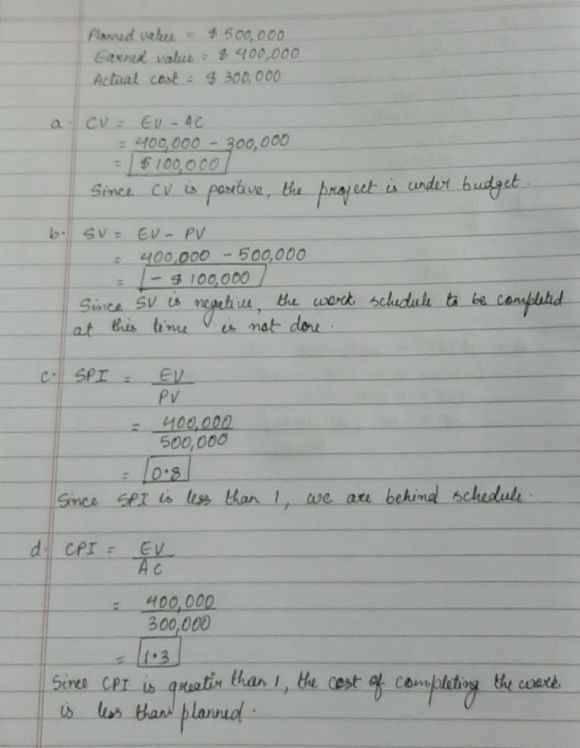 Planned value = $ 500,000
Earned value = $ 400,000
Actual cost = $ 300,000
a. CV = EV - AC
= 400,000 - 300,000
= $ 100,000
Since CV is positive, the project is under budget.
b. SV = EV - PV
= 400,000 - 500,000
= - $ 100,000
Since SV is negative, the work schedule to be completed
at this time is not done.
c. SPI = EV
PV
= 400,000
500,000
= 0.8
Since SPI is less than 1, we are behind schedule.
d. CPI = EV
AC
= 400,000
300,000
= 1.3
Since CPI is greater than 1, the cost of completing the work
is less than planned.